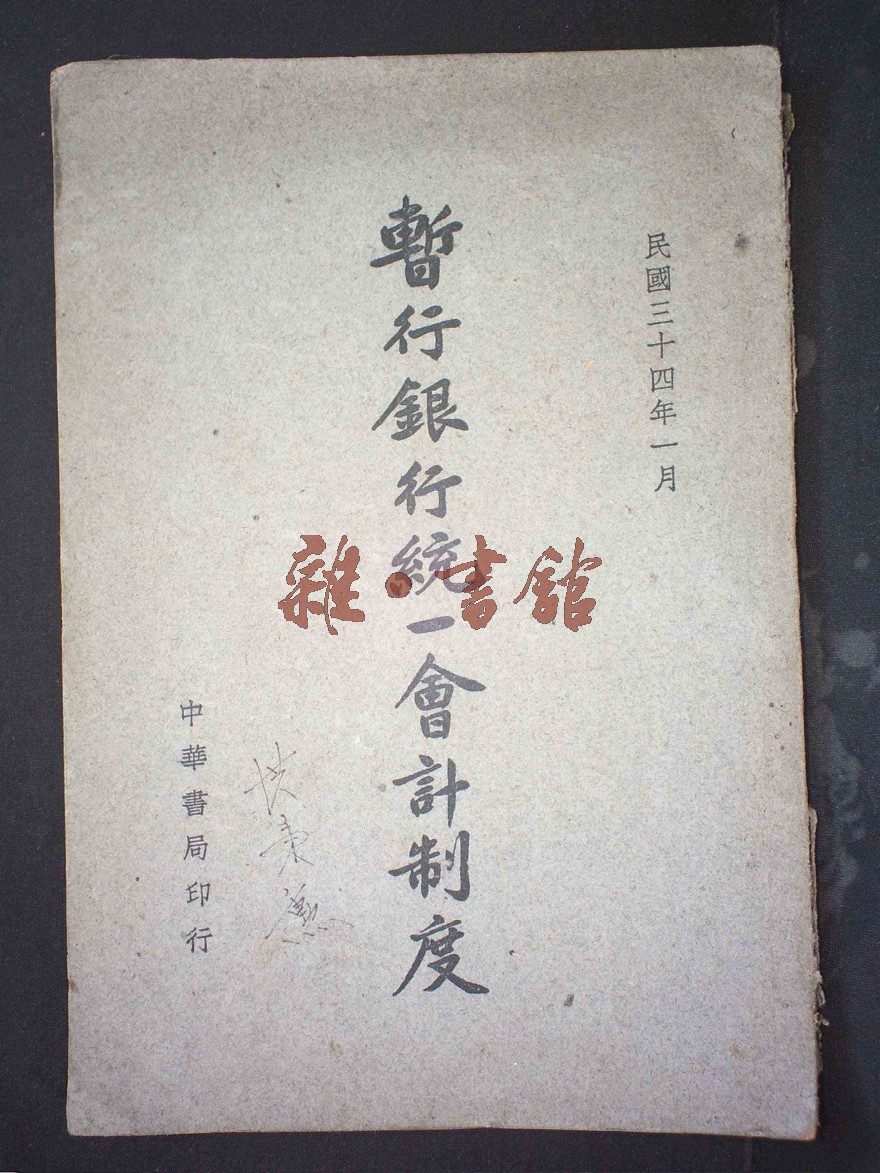 民國三十四年一月
暫行銀行統一會計制度
中華書局印行
雜·書館